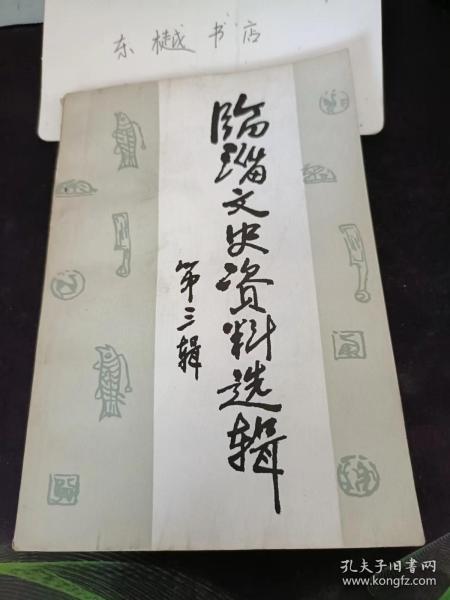 东樾书店
临淄文史资料选辑
第三辑
孔夫子旧书网
www.kongfz.com